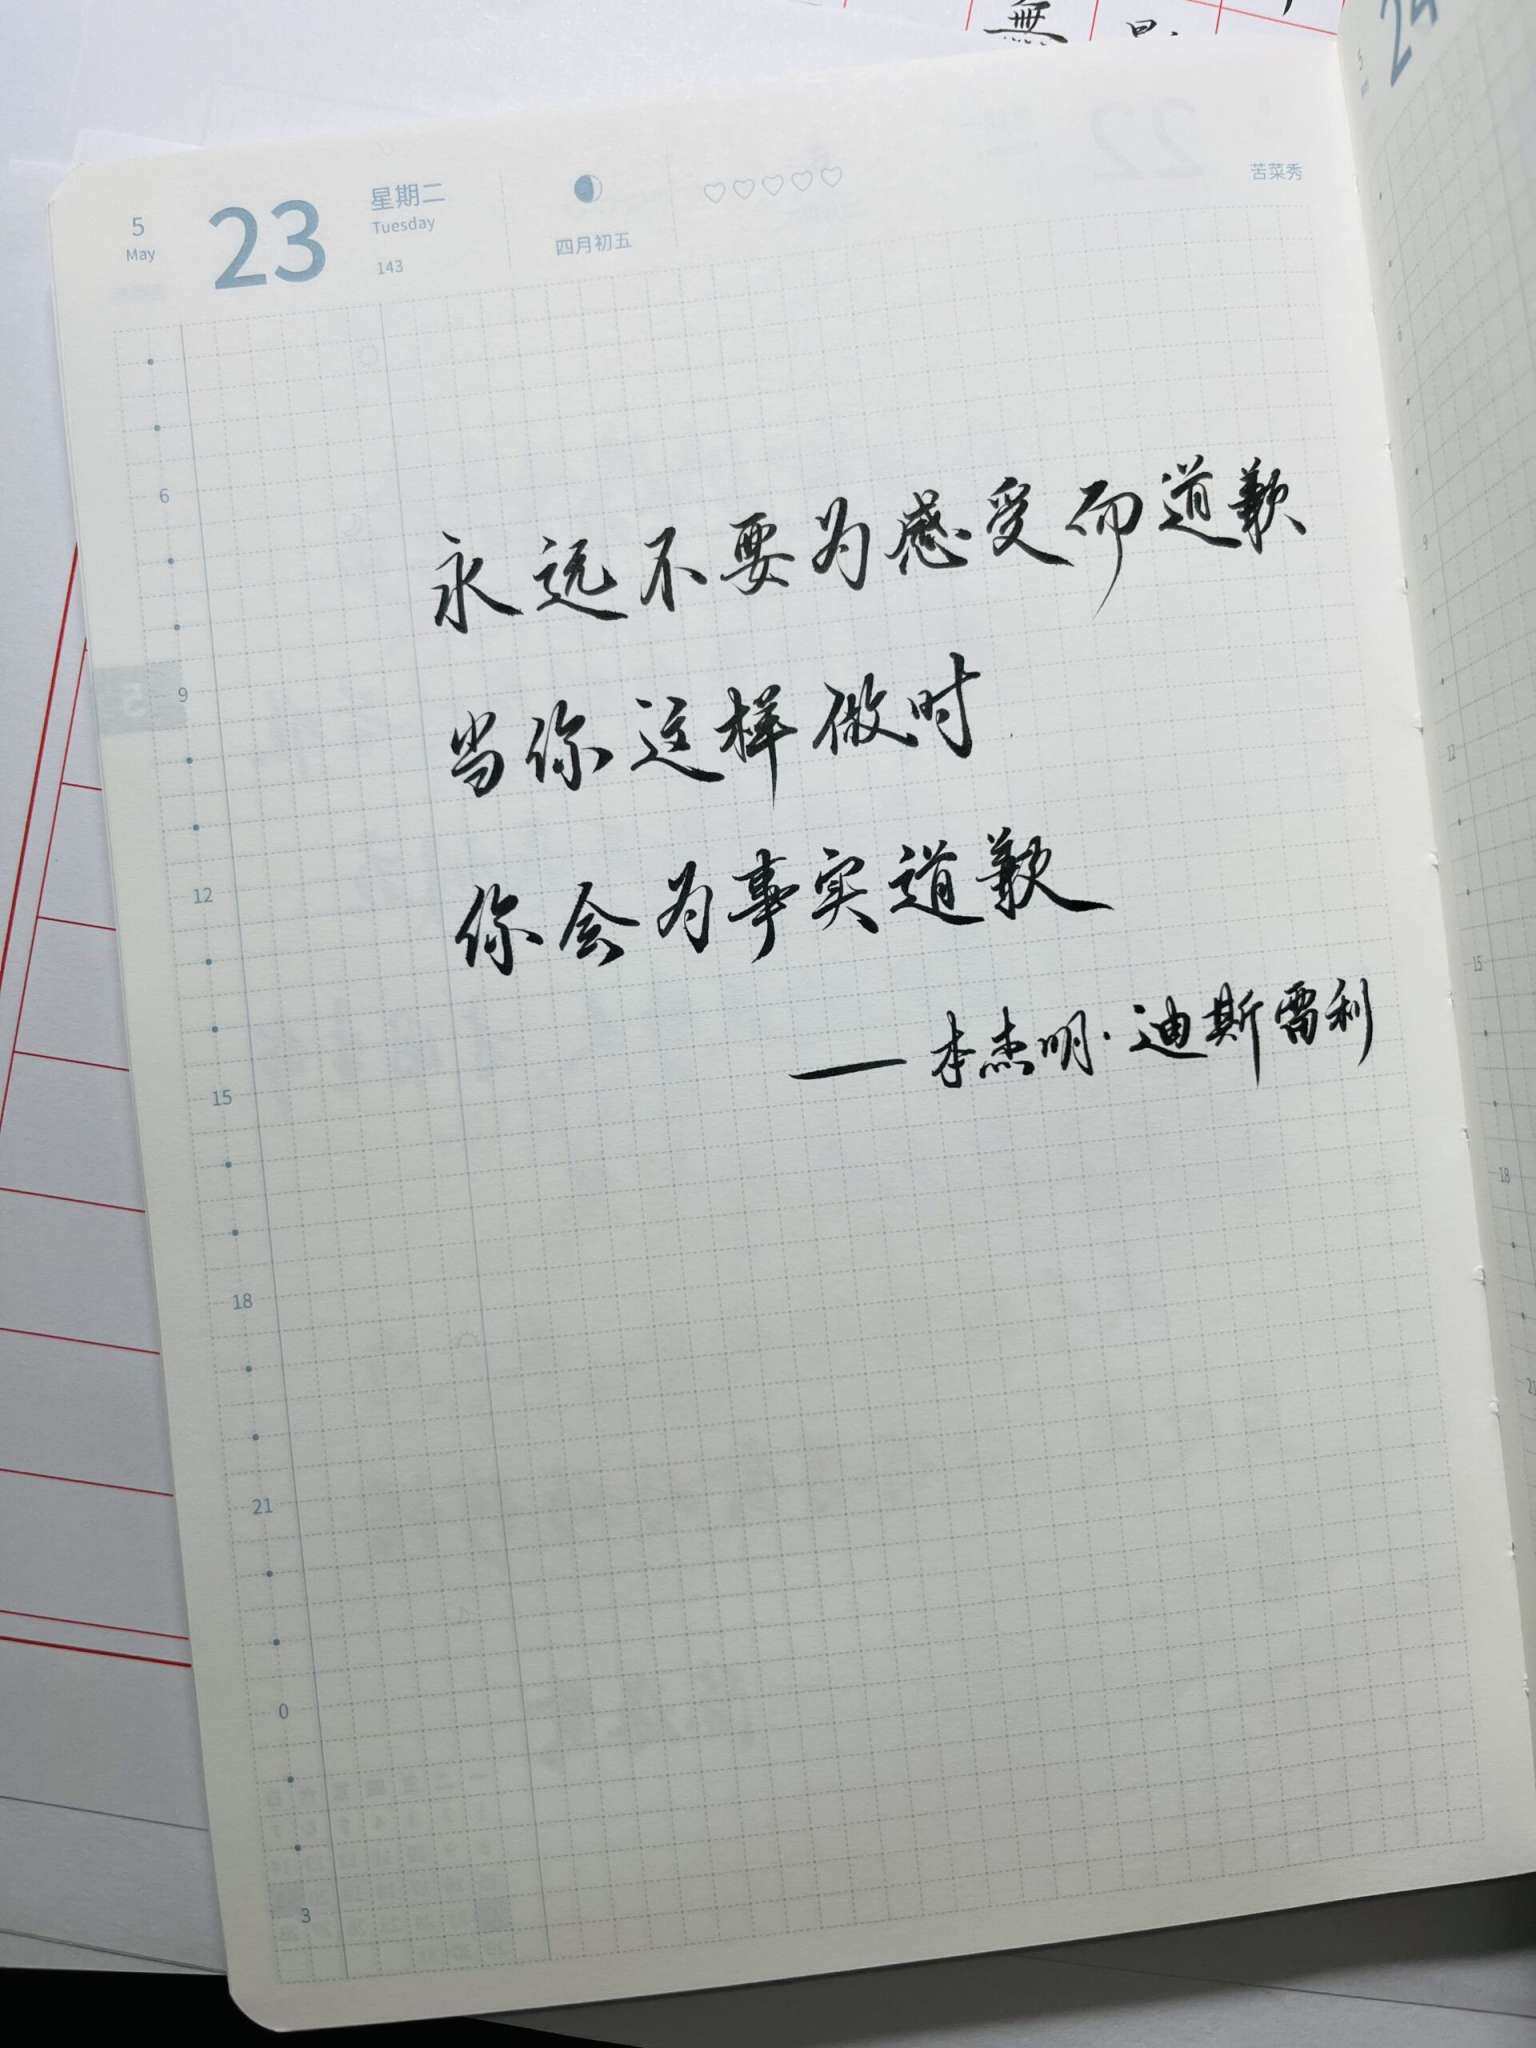 無 日
24
5
May
23
星期二
Tuesday
143
四月初五
苦菜秀
永远不要为感受而道歉
当你这样做时
你会为事实道歉
——本杰明·迪斯雷利
6
9
12
15
18
21
0
3
6
9
12
15
18
21